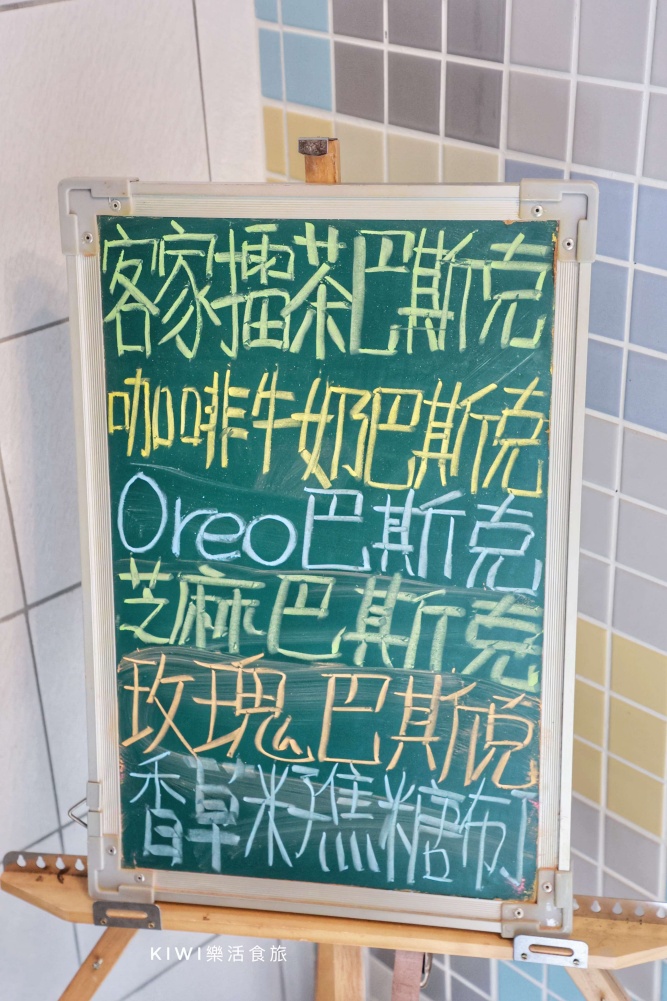 客家擂茶巴斯克
咖啡牛奶巴斯克
Oreo巴斯克
芝麻巴斯克
玫瑰巴斯克
香草米焦糖布丁
KIWI樂活食旅